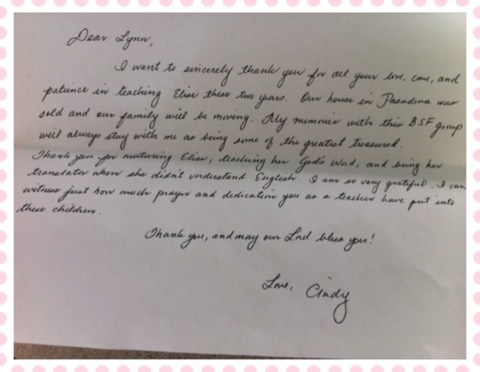 Dear Lynn,
I want to sincerely thank you for all your love, care, and
patience in teaching Elise these two years. Our house in Pasadena was
sold and our family will be moving. My memories with this BSF group
will always stay with me as being some of the greatest treasured.
Thank you for nurturing Elise, teaching her God's Word, and being her
translator when she didn't understand English. I am so very grateful. I can
witness just how much prayer and dedication you as a teacher have put into
these children.
Thank you, and may our Lord bless you!
Love, Cindy